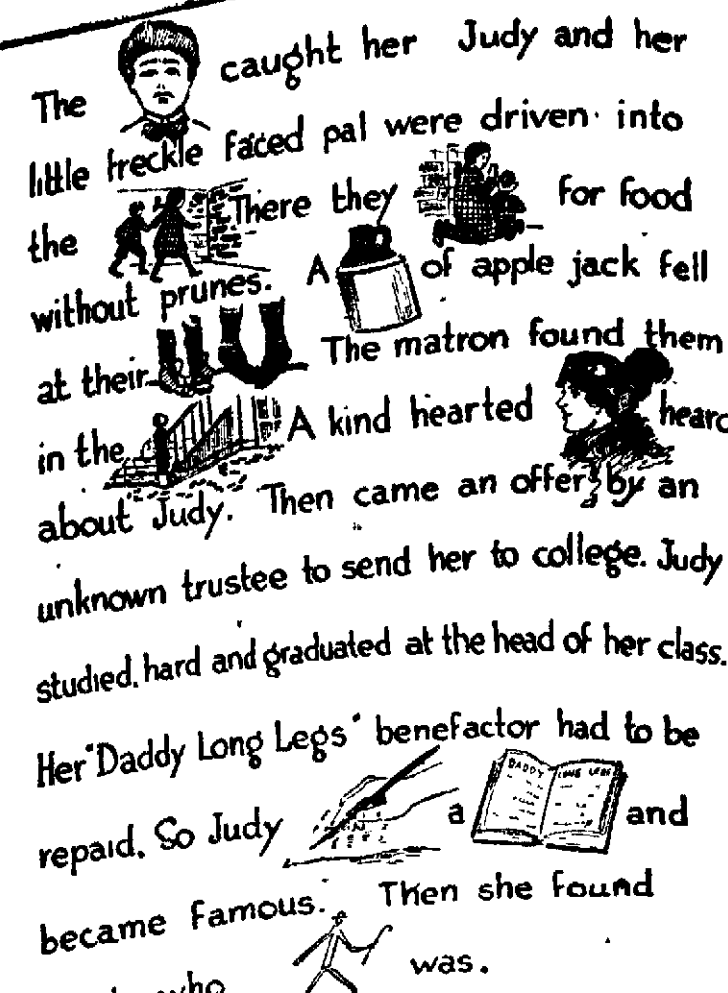 The caught her Judy and her
little freckle faced pal were driven into
the There they for food
without prunes. A of apple jack fell
at their The matron found them
in the A kind hearted heard
about Judy. Then came an offer by an
unknown trustee to send her to college. Judy
studied hard and graduated at the head of her class.
Her "Daddy Long Legs" benefactor had to be
repaid. So Judy a DADDY LONG LEGS and
became famous. Then she found
who was.